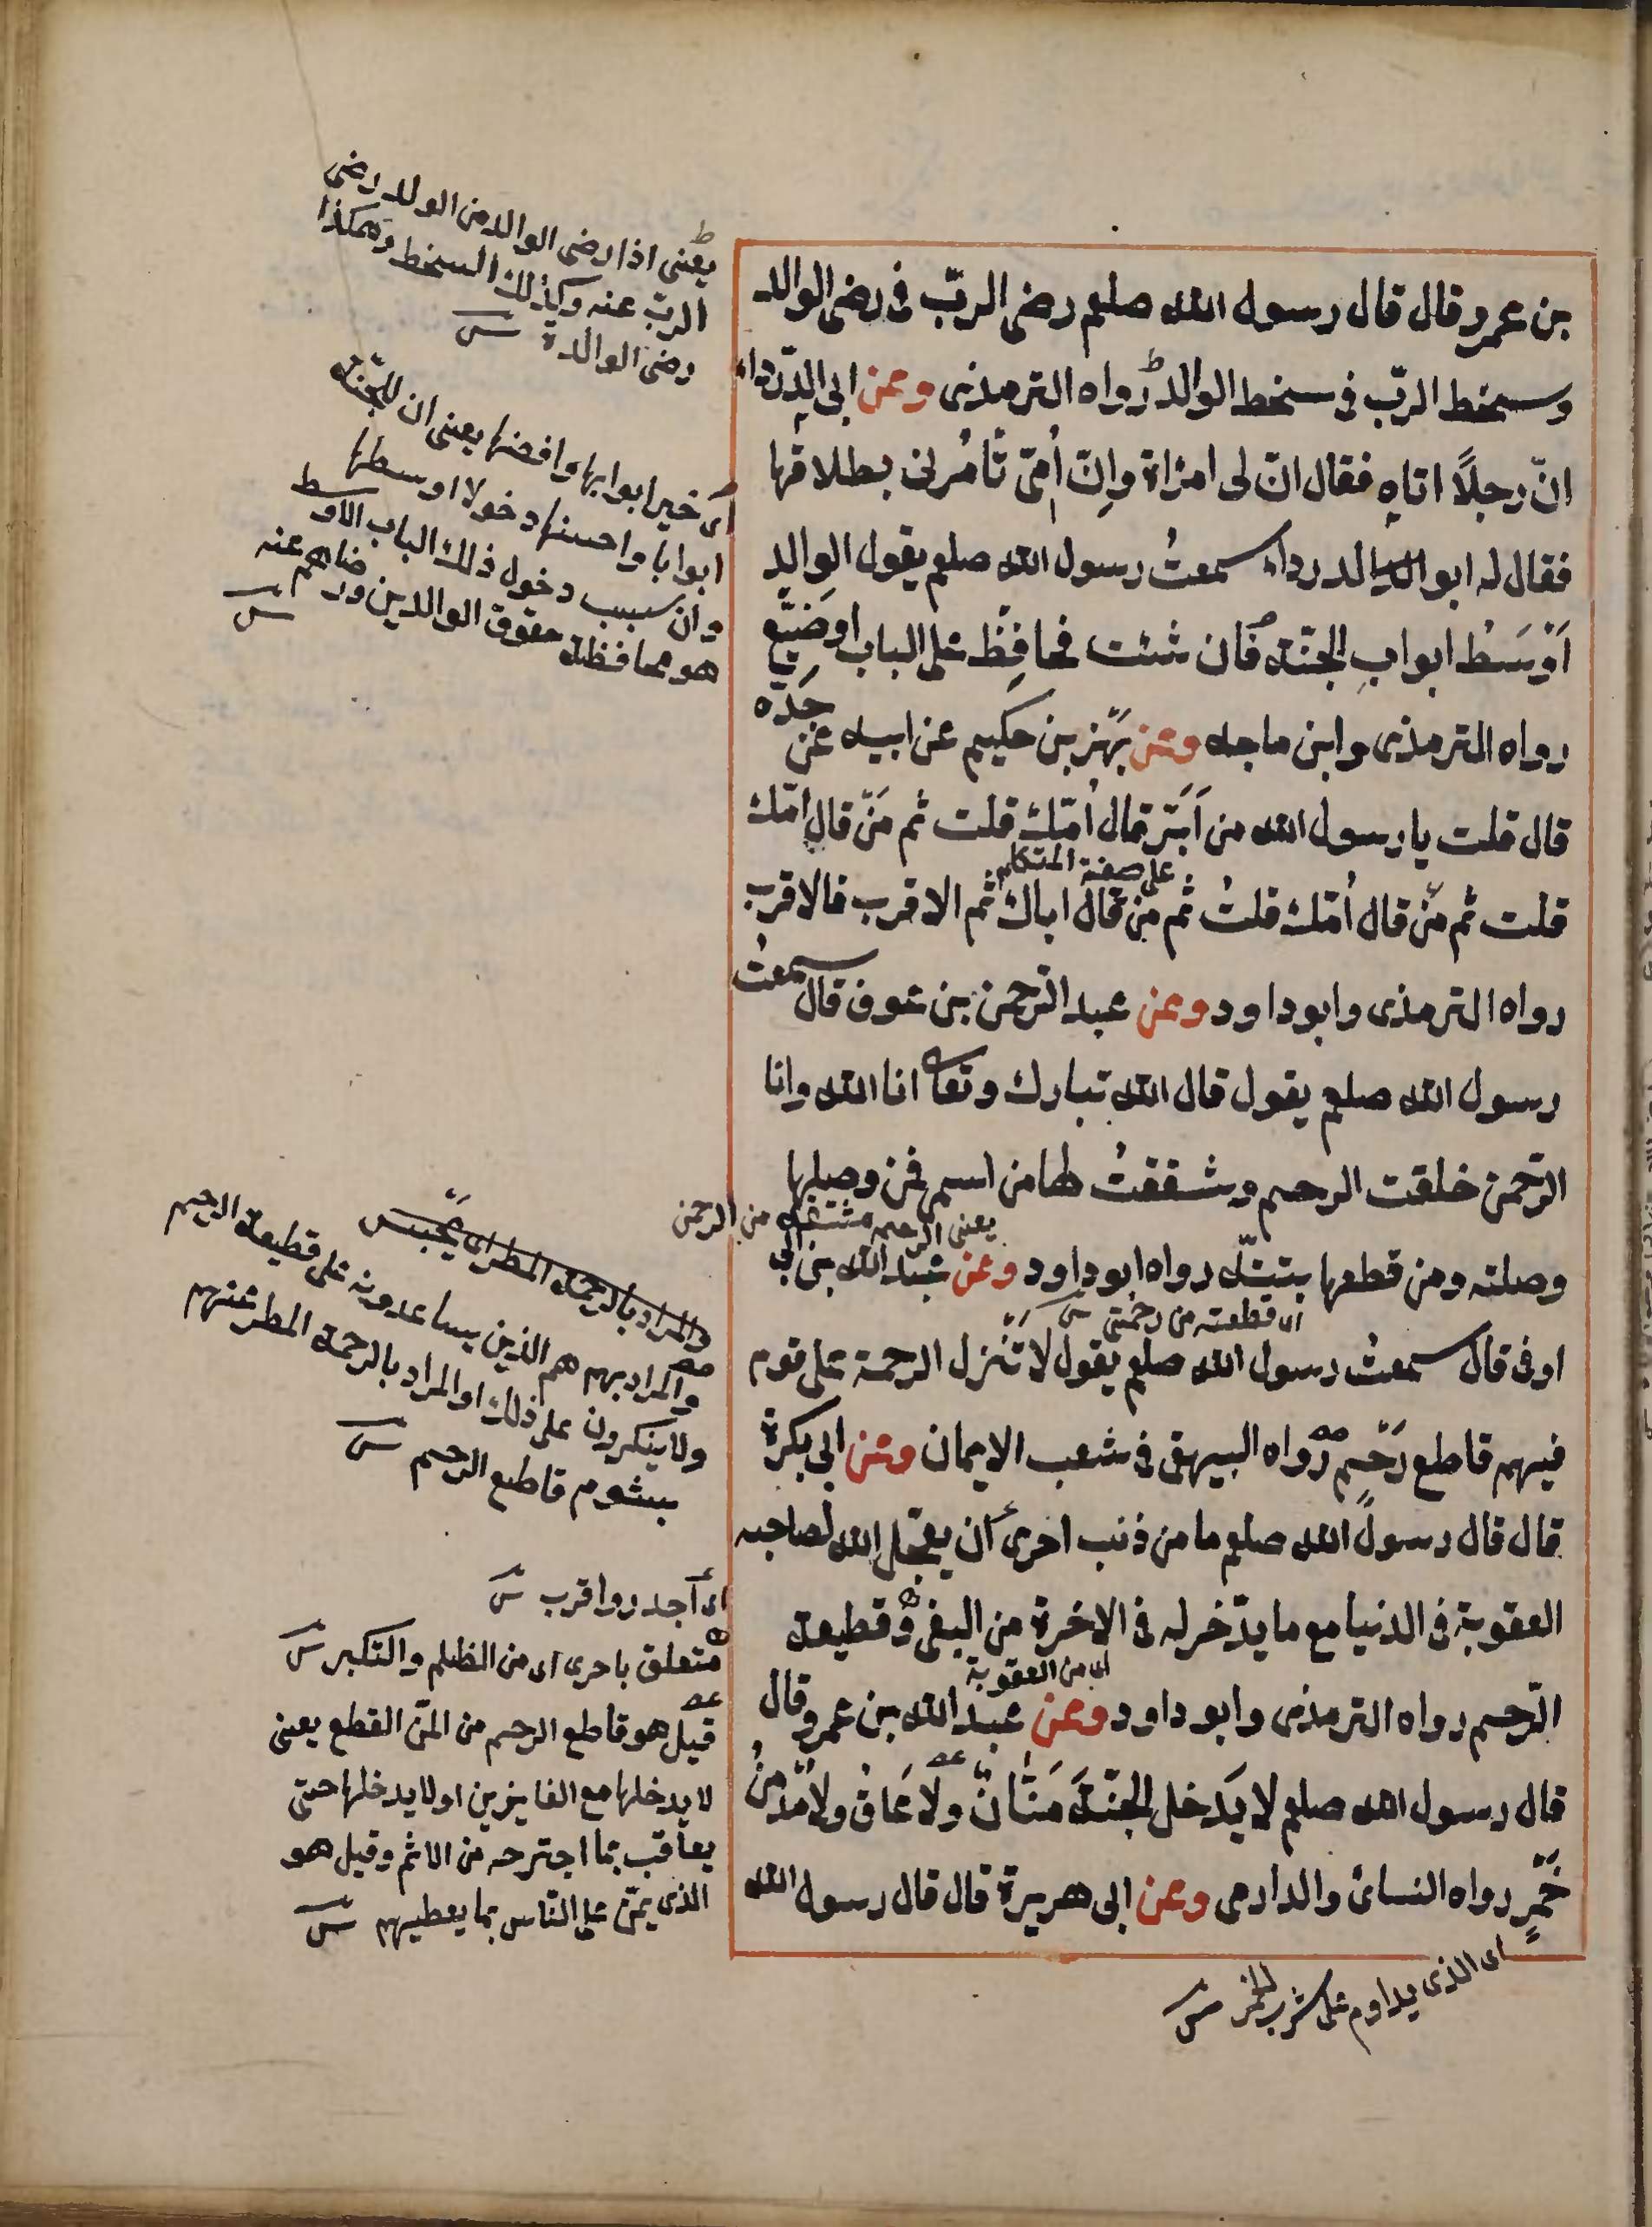 بن عمرو قال قال رسول الله صلعم رضى الربّ فى رضى الوالد
وسخط الربّ فى سخط الوالد رواه الترمذى وعن ابى الدّرداء
انّ رجلاً اتاه فقال انّ لى امرأة وانّ اُمّى تأمُرنى بطلاقها
فقال له ابو الدرداء سمعتُ رسول الله صلعم يقول الوالد
اَوْسَطُ ابوابِ الجنّة فان شئت فحافِظْ على الباب او ضَيِّع
رواه الترمذى وابن ماجه وعن بَهْز بن حكيم عن ابيه عن جَدّه
قال قلت يا رسول الله من اَبَرّ قال اُمّك قلت ثم مَنْ قال امّك
على صفة المتكلم
قلت ثم منْ قال اُمّك قلتُ ثم منْ قال اباك ثم الاقرب فالاقرب
رواه الترمذى وابو داود وعن عبد الرّحمن بن عوف قال سمعتُ
رسول الله صلعم يقول قال الله تبارك وتعا انا الله وانا
الرّحمن خلقت الرحم وشققتُ لها من اسمى فمن وصلها
يعنى الرحم مشتقة من الرحمن
وصلته ومن قطعها بتتّه رواه ابو داود وعن عبد الله بن ابى
اى قطعته من رحمتى س
اوفى قال سمعتُ رسول الله صلعم يقول لا تَنْزل الرحمة على قوم
فيهم قاطع رَحِمٍ رواه البيهقى فى شعب الايمان وعن ابى بكرة
قال قال رسول الله صلعم ما من ذنب احرى ان يعجّل الله لصاحبه
العقوبة فى الدنيا مع ما يدّخر له فى الاخرة من البغى وقطيعة
اى من العقوبة
الرّحم رواه الترمذى وابو داود وعن عبد الله بن عمرو قال
قال رسول الله صلعم لا يَدخل الجنّة مَنّانٌ ولا عَاقٌ ولا مُدْمِنُ
خَمْرٍ رواه النسائ والدارمى وعن ابى هريرة قال قال رسول الله
اى الذى يداوم على شرب الخمر س
يعنى اذا رضى الوالد من الولد رضى
الربّ عنه وكذلك السخط وهكذا
رضى الوالدة س
اى خير ابوابها وافضلها يعنى ان للجنّة
ابوابا واحسنها دخولا اوسطها
وان سبب دخول ذلك الباب الاوسط
هو محافظة حقوق الوالدين ورضاهم عنه
س
والمراد بالرحمة المطر اى يُحبس
والمراد بهم هم الذين يساعدونه على قطيعة الرحم
ولا ينكرون على ذلك او المراد بالرحمة المطر عنهم
بشوم قاطع الرحم س
اى اجدر واقرب س
متعلق باحرى اى من الظلم والتكبر س
قيل هو قاطع الرحم من المنّ القطع يعنى
لا يدخلها مع الفايزين او لا يدخلها حتى
يعاقب بما اجترحه من الاثم وقيل هو
الذى يمنّ على النّاس بما يعطيهم س